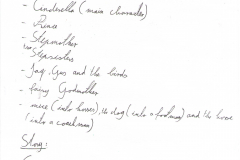 - Cinderella (main character)
- Prince
- Stepmother
two Stepsisters
- Jaq, Gus and the birds
- fairy Godmother
- mice (into horses), the dog (into a footman) and the horse
(into a coachman)
Story: